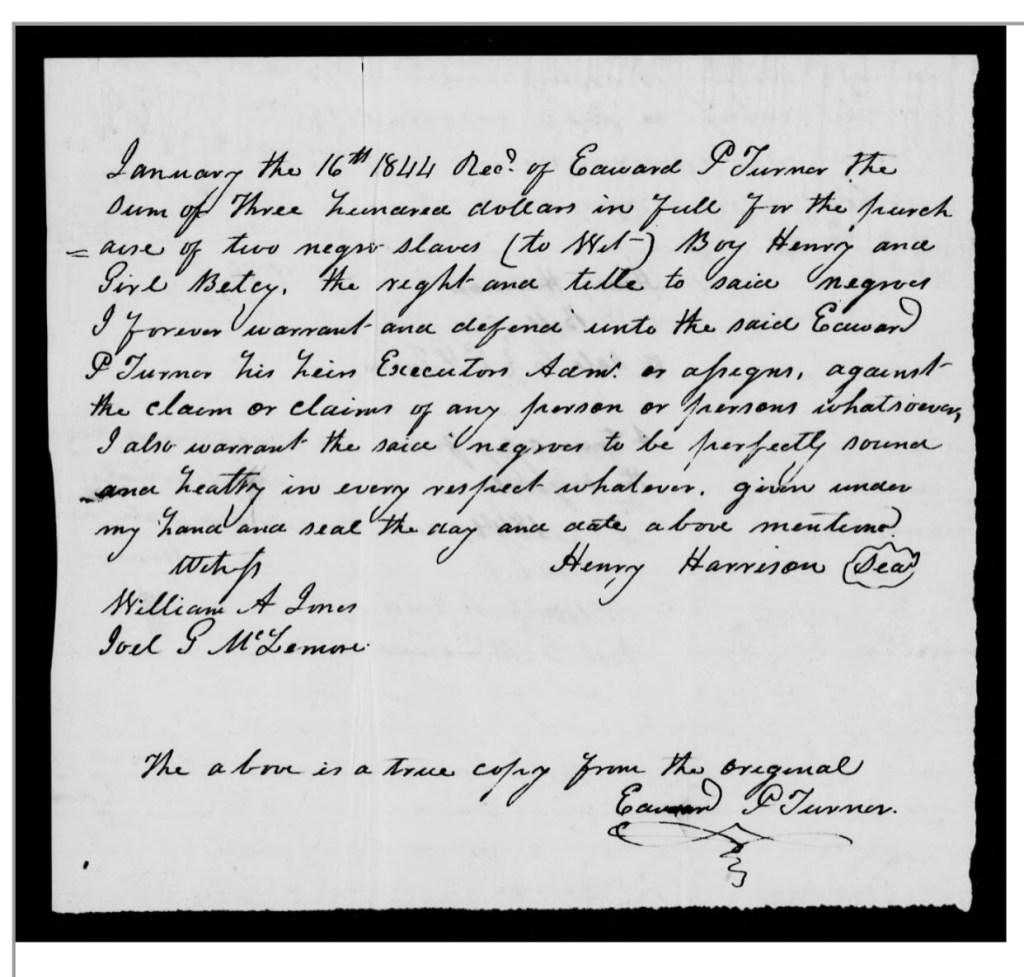 January the 16th 1844 Recd. of Edward P Turner the
sum of Three hundred dollars in full for the purch
=ase of two negro slaves (to Wit) Boy Henry and
Girl Betcy. the right and title to said negroes
I forever warrant and defend unto the said Edward
P Turner his heirs Executors Adms. or assigns, against
the claim or claims of any person or persons whatsoever,
I also warrant the said negroes to be perfectly sound
and healthy in every respect whatever. given under
my hand and seal the day and date above mentiond.
Witness Henry Harrison (Seal)
William A Jones
Joel G McLemore.
The above is a true copy from the original
Edward P Turner.